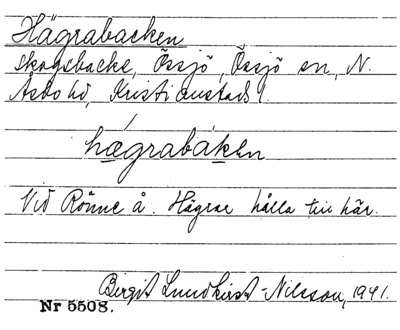 Hägrabacken
skogsbacke, Össjö, Össjö sn, N.
Åsbo hd, Kristianstads l.
hægrabáken
Vid Rönne å. Hägrar hålla till här.
Birgit Lundkvist-Nilsson, 1941.
Nr 5508.